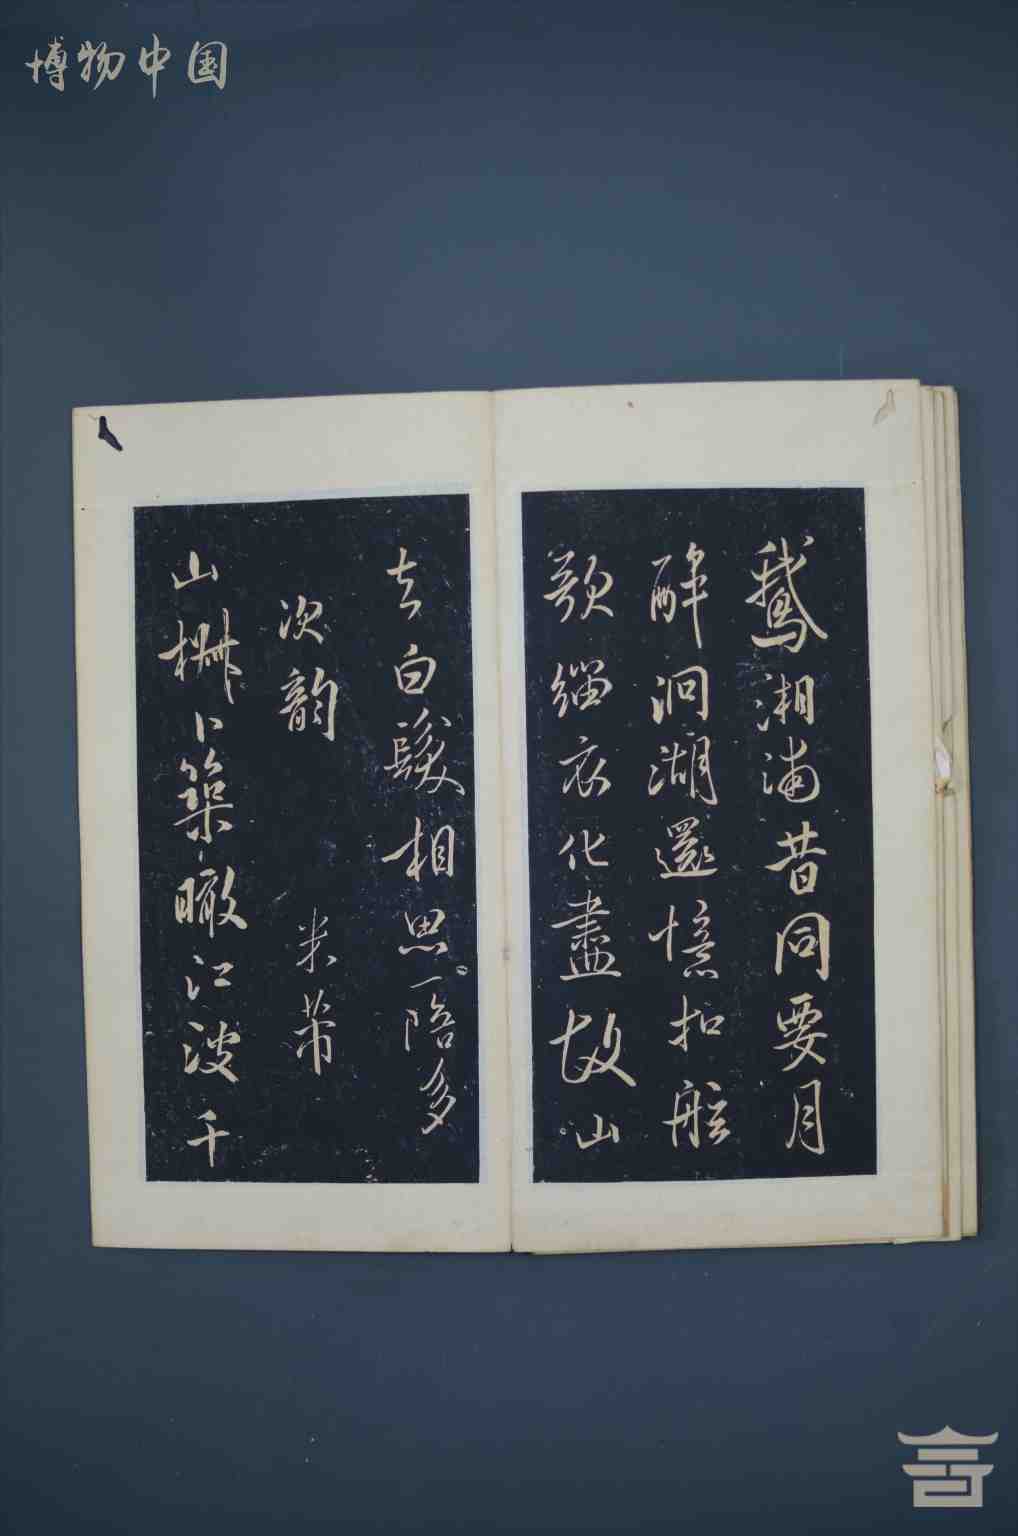 博物中国
鵞湘浦昔同要月
醉洞湖還憶扣舷
歌緇衣化盡故山
去白髮相思一陪多
次韵
米芾
山椒卜築瞰江波千